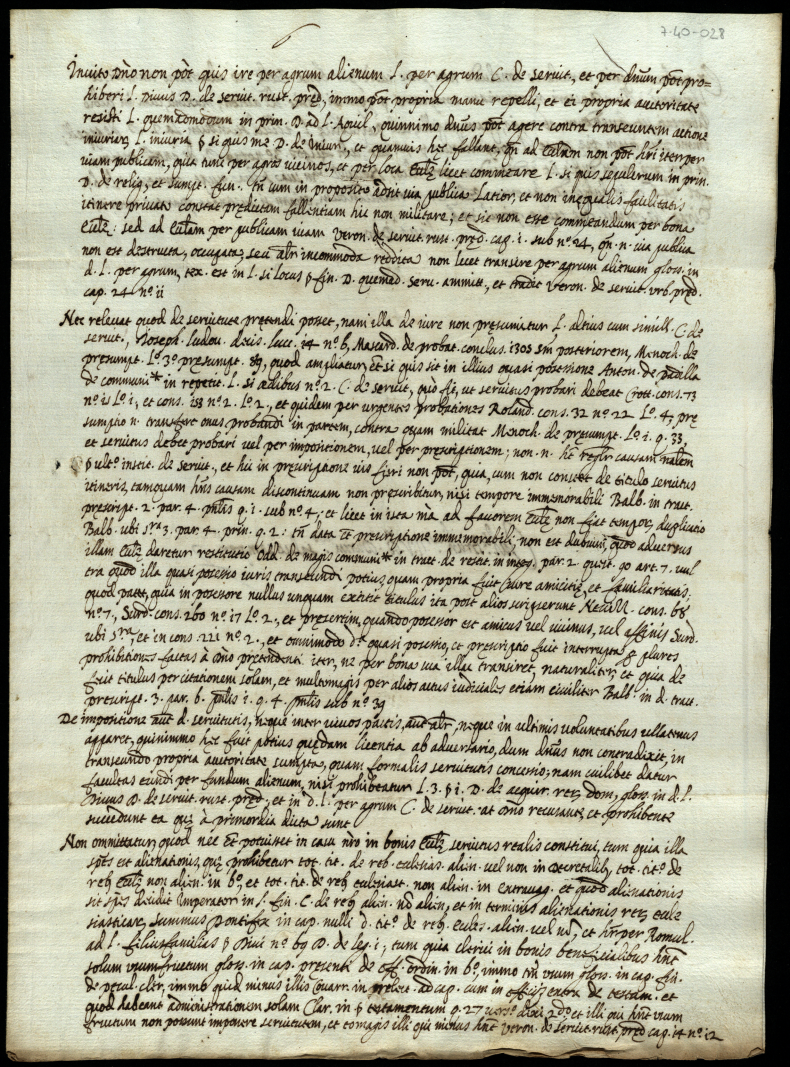 7-40-028
Invito dno non pot quis ire per agrum alienum l. per agrum C. de servit., et per dnum pot pro=
hiberi l. Divus D. de servit. rust. pred., immo pot propria manu repelli, et ei propria auctoritate
resisti l. quemadmodum in prin. D. ad l. Aquil., quinnimo dnus pot agere contra transeuntem actione
iniuriar. l. iniuria § si quis me D. de iniur., et quamvis hec fallant, qn ad ecclam non pot hri iter per
viam publicam, quia tunc per agros vicinos, et per loca eccle licet commeare l. si quis sepulcrum in prin.
D. de relig. et sumpt. fun. tn cum in proposito adsit via publica latior, et non inequalis facilitatis
itinere privato constat predictam fallentiam hic non militare; et sic non esse commeandum per bona
eccle. sed ad ecclam per publicam viam Veron. de servit. rust. pred. cap. i. sub no. 24, qn. n. via publica
non est destructa, occupata, seu alr incommoda reddita non licet transire per agrum alienum gloss. in
d. l. per agrum, tex. est in l. si locus § fin. D. quemad. serv. ammitt., et tradit Veron. de servit. urb. pred.
cap. 24 no. ii
Nec relevat quod de servitute pretendi posset, nam illa de iure non presumitur l. altius cum simill. C. de
servit., Joseph. Ludov. decis. Luce. 14 no. 6, Mascard. de probat. conclus. 1303 sm posteriorem, Menoch. de
presumpt. lo. 3o presumpt. 89, quod ampliatur, et si quis sit in illius quasi possessione Anton. de
de communi* in repetit. l. si ædibus no. 2. C. de servit., quo fit, ut servitus probari debeat Crott. cons. 73
no. ii lo. i, et cons. 158 no. 2. lo. 2., et quidem per urgentes probationes Roland. cons. 32 no. 22 lo. 4, pre
sumptio n. transfert onus probandi in partem, contra quam militat Menoch. de presumpt. lo. i. q. 33,
et servitus debet probari vel per impositionem, vel per prescriptionem; non. n. het causam nalem
§ ulto. instit. de servit., et hii in prescriptione vis fieri non pot, quia, cum non constet de titulo servitus
itineris, tamquam hns causam discontinuam non prescribitur, nisi tempore immemorabili Balb. in tract.
prescript. 2. par. 4. pnlis q. i. sub no. 4; et licet in ista ma ad favorem eccle non fiat tempor. duplicatio
Balb. ubi sra 3. par. 4. prin. q. 2: tn data et prescriptione immemorabili non est dubium, quod adversus
illam eccle daretur restitutio Odd. de magis communi* in tract. de restit. in integ. par. 2. quest. 90 art. 7. vel
tra quod illa quasi possessio iuris transeundi potius quam propria fuit iure amicitie, et familiaritatis,
quod patet, quia in possessore nullus unquam extitit titulus ita post alios scripserunt Nevizz. cons. 68
no. 7, Surd. cons. 160 no. 17 lo. 2., et presertim, quando possessor est amicus vel vicinus, vel affinis Surd.
ubi sra, et in cons. 221 no. 2., et omnimodo da. quasi possessio, et prescriptio fuit interrupta per plures
prohibitiones factas à dno pretendenti iter, ne per bona sua illac transiret, naturaliter, et quia de
fuit titulus per citationem solam, et multomagis per alios actus iudiciales etiam civiliter Balb. in d. tract.
prescript. 3. par. 6. pnlis i. q. 4. pnlis sub no. 39
De impositione aut d. servitutis, neque inter vivos pactis, aut alr, neque in ultimis voluntatibus ullatenus
apparet, quinimmo hec fuit potius quedam licentia ab adversario, dum dnus non contradixit, in
transeundo propria auctoritate sumpta, quam formalis servitutis concessio; nam cuilibet datur
facultas eundi per fundum alienum, nisi prohibeatur l. 3. § i. D. de acquir. rer. dom., gloss. in d. l.
Divus D. de servit. rust. pred., et in d. l. per agrum C. de servit. at dno recusante, et prohibente
succedunt ea que à primordio dicta sunt
Non ommittatur, quod nec et potuisset in casu nro in bonis eccle servitus realis constitui, tum quia illa
spes est alienationis, que prohibetur tot. tit. de reb. ecclesias. alien. vel non in decretalib., tot. tito. de
reb. eccle non alien. in 6o, et tot. tit. de reb. ecclesiast. non alien. in extravag. et quod alienationis
sit spes decidit Imperator in l. fin. C. de reb. alien. no alien, et in terminis alienationis rer. eccle
siasticar. summus Pontifex in cap. nulli d. tito. de reb. eccles. alien. vel no, et hnr per Romul.
ad l. filius familias § Divi no. 69 D. de leg. i., tum quia clerici in bonis beneficialibus hnt
solum usumfructum gloss. in cap. presenti de off. ordin. in 6o, immo tm usum gloss. in cap. fin.
de pecul. cler., immo quid minus illis Covarr. in ad cap. cum in officijs extra de testam. et
quod habeant administrationem solam Clar. in § testamentum q. 27 verso. dixi 2do et illi qui hnt usum
fructum non possunt imponere servitutem, et eo magis illi qui minus hnt Veron. de servit. rust. pred. cap. 14 no. 12